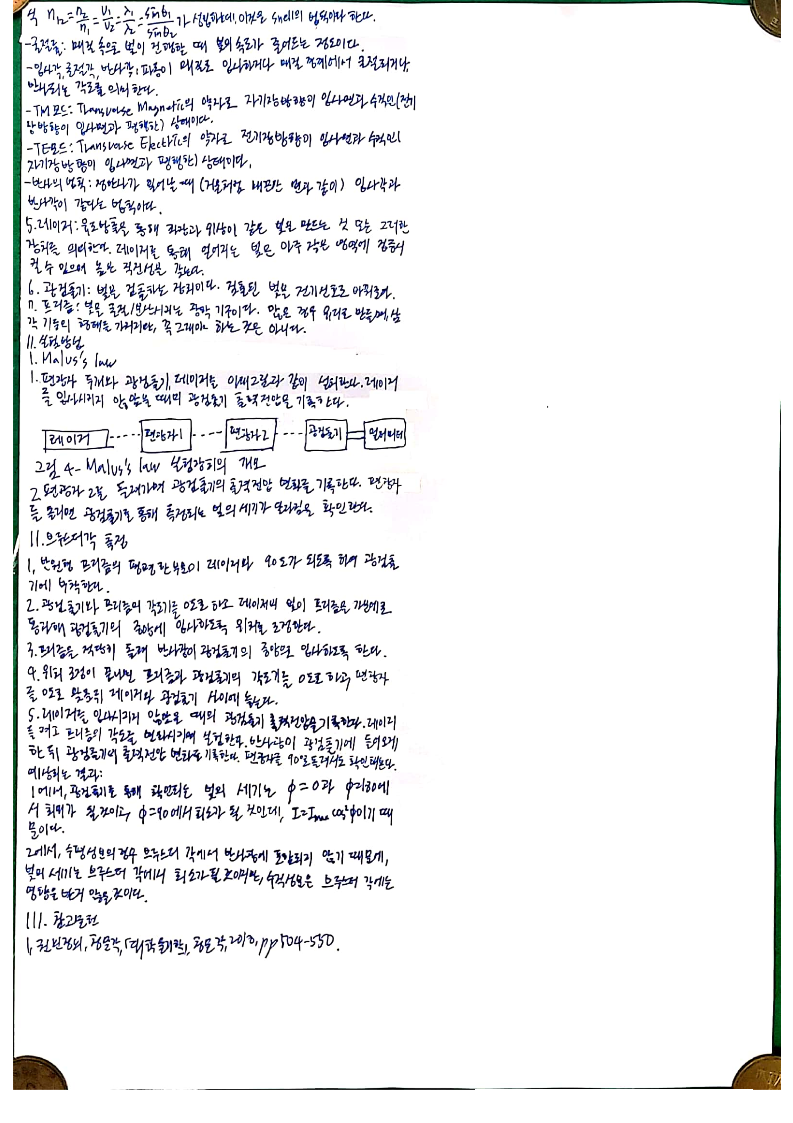 식 n₁₂=n₂/n₁=v₁/v₂=λ₁/λ₂=sinθ₁/sinθ₂가 성립하는데, 이것을 snell의 법칙이라 한다.
-굴절률: 매질 속으로 빛이 진행할 때 빛의 속도가 줄어드는 정도이다.
-입사각, 굴절각, 반사각: 파동이 매질로 입사하거나 매질 경계에서 굴절되거나,
반사되는 각도를 의미한다.
-TM모드: Transverse Magnetic의 약자로 자기장방향이 입사면과 수직인(전기
장방향이 입사면과 평행한) 상태이다.
-TE모드: Transverse Electric의 약자로 전기장방향이 입사면과 수직인(
자기장방향이 입사면과 평행한) 상태이다.
-반사의 법칙: 정반사가 일어날 때 (거울처럼 매끈한 면과 같이) 입사각과
반사각이 같다는 법칙이다.
5.레이저: 유도방출을 통해 파장과 위상이 같은 빛을 만드는 것 또는 그러한
장치를 의미한다. 레이저를 통해 얻어지는 빛은 아주 작은 영역에 집중시
킬 수 있으며 높은 직진성을 갖는다.
6. 광검출기: 빛을 검출하는 장치이다. 검출된 빛을 전기신호로 바꿔준다.
7. 프리즘: 빛을 굴절/분산시키는 광학 기구이다. 많은 경우 유리로 만들며, 삼
각 기둥의 형태를 가지지만, 꼭 그래야 하는 것은 아니다.
II. 실험방법
1. Malus's law
1. 편광자 두개와 광검출기, 레이저를 아래그림과 같이 설치한다. 레이저
를 입사시키지 않았을 때의 광검출기 출력전압을 기록한다.
레이저 편광자1 편광자2 광검출기 멀티미터
그림 4- Malus's law 실험장치의 개요
2. 편광자 2를 돌려가며 광검출기의 출력전압 변화를 기록한다. 편광자
를 돌리면 광검출기를 통해 측정되는 빛의 세기가 달라짐을 확인한다.
II.브루스터각 측정
1, 반원형 프리즘의 평평한 부분이 레이저와 90도가 되도록 하여 광검출
기에 부착한다.
2. 광검출기와 프리즘의 각도기를 0도로 하고 레이저의 빛이 프리즘을 가운데로
통과해 광검출기의 중앙에 입사하도록 위치를 조정한다.
3.프리즘을 적당히 돌려 반사광이 광검출기의 중앙으로 입사하도록 한다.
4. 위치 조정이 끝나면 프리즘과 광검출기의 각도기를 0도로 하고, 편광자
를 0도로 맞춘뒤 레이저와 광검출기 사이에 놓는다.
5.레이저를 입사시키지 않았을 때의 광검출기 출력전압을 기록한다. 레이저
를 켜고 프리즘의 각도를 변화시키며 실험한다. 반사광이 광검출기에 들어오게
한 뒤 광검출기의 출력전압 변화를 기록한다. 편광자를 90도 돌려서도 확인해본다.
예상되는 결과:
1에서, 광검출기를 통해 확인되는 빛의 세기는 φ=0과 φ=180에
서 최대가 될 것이고, φ=90에서 최소가 될 것인데, I=Imax cos²φ이기 때
문이다.
2에서, 수평성분의 경우 브루스터 각에서 반사광에 포함되지 않기 때문에,
빛의 세기는 브루스터 각에서 최소가 될 것이지만, 수직성분은 브루스터 각에는
영향을 받지 않을 것이다.
III. 참고문헌